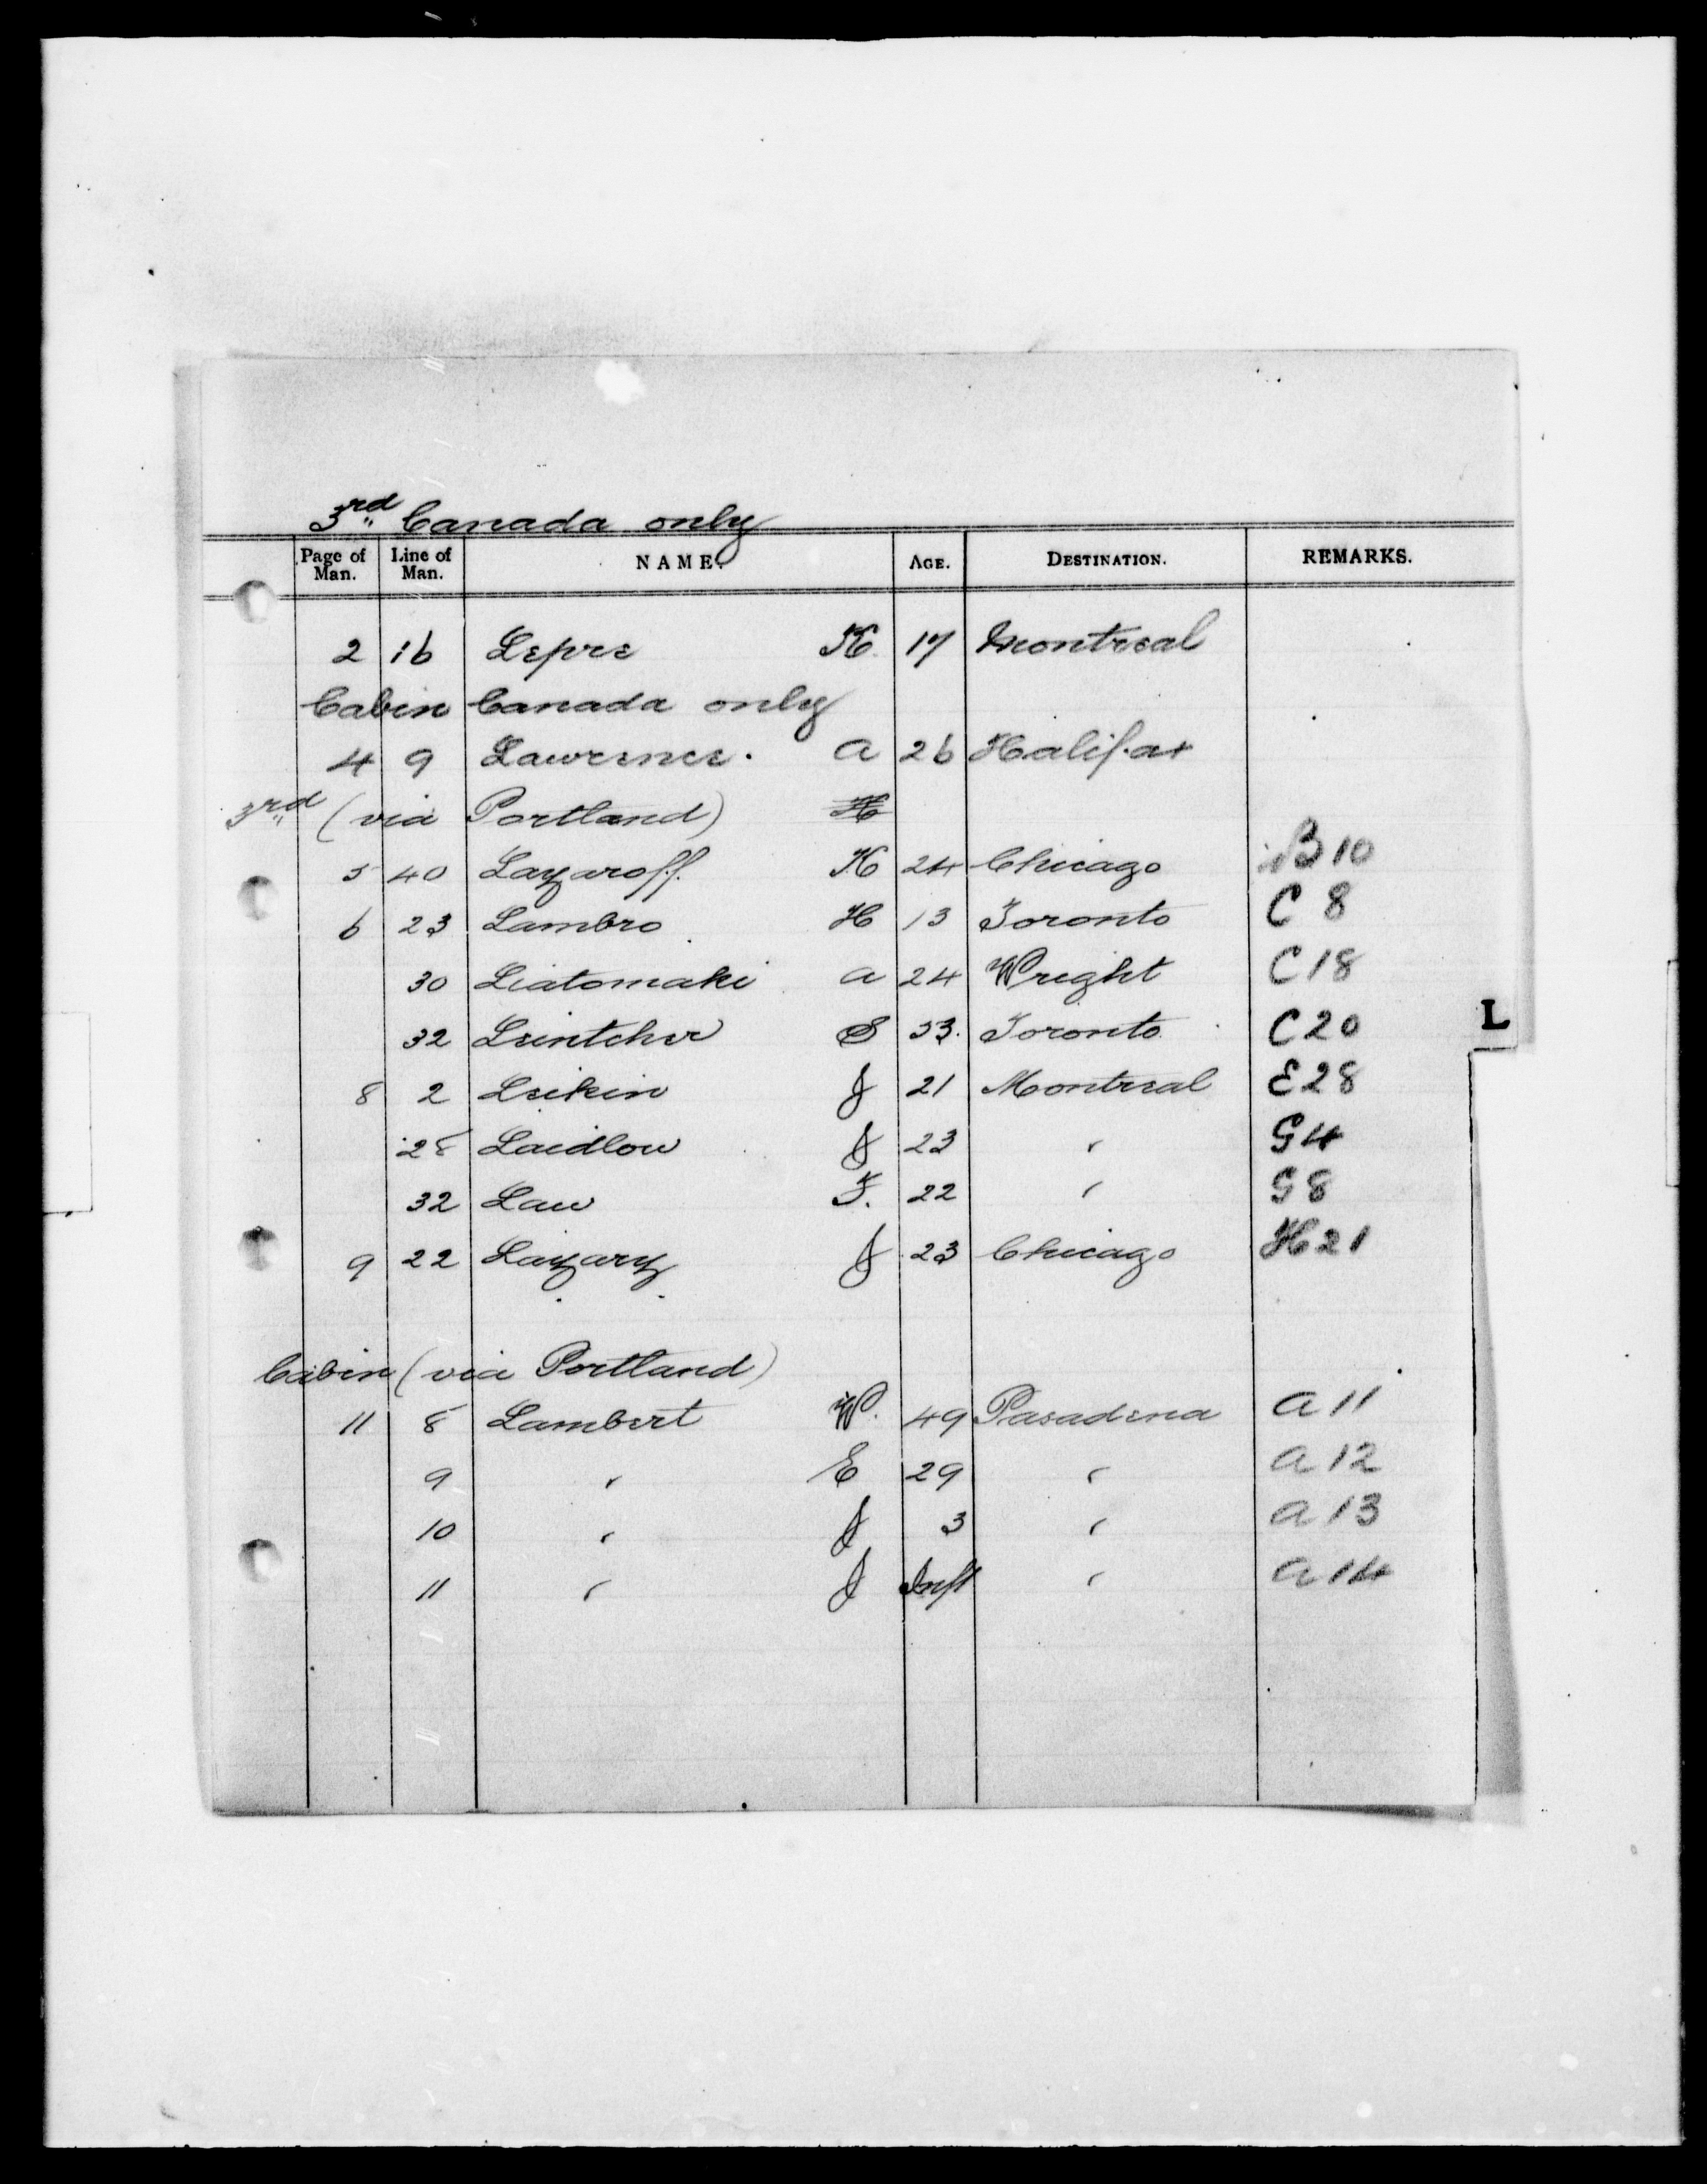 3rd Canada only
Page of Man. Line of Man. NAME. AGE. DESTINATION. REMARKS.
2 16 Lepre K. 17 Montreal
Cabin Canada only
4 9 Lawrence. A 26 Halifax
3rd (via Portland)
5 40 Lazaroff. K 24 Chicago B 10
6 23 Lambro H 13 Toronto C 8
30 Liatomaki A 24 Wright C 18
32 Leintcher S 33. Toronto C 20
L
8 2 Leikin J 21 Montreal E 28
28 Laidlow J 23 " G 4
32 Law T. 22 " G 8
9 22 Lazary J 23 Chicago H 21
Cabin (via Portland)
11 8 Lambert W. 49 Pasadena A 11
9 " E 29 " A 12
10 " J 3 " A 13
11 " J Inft " A 14